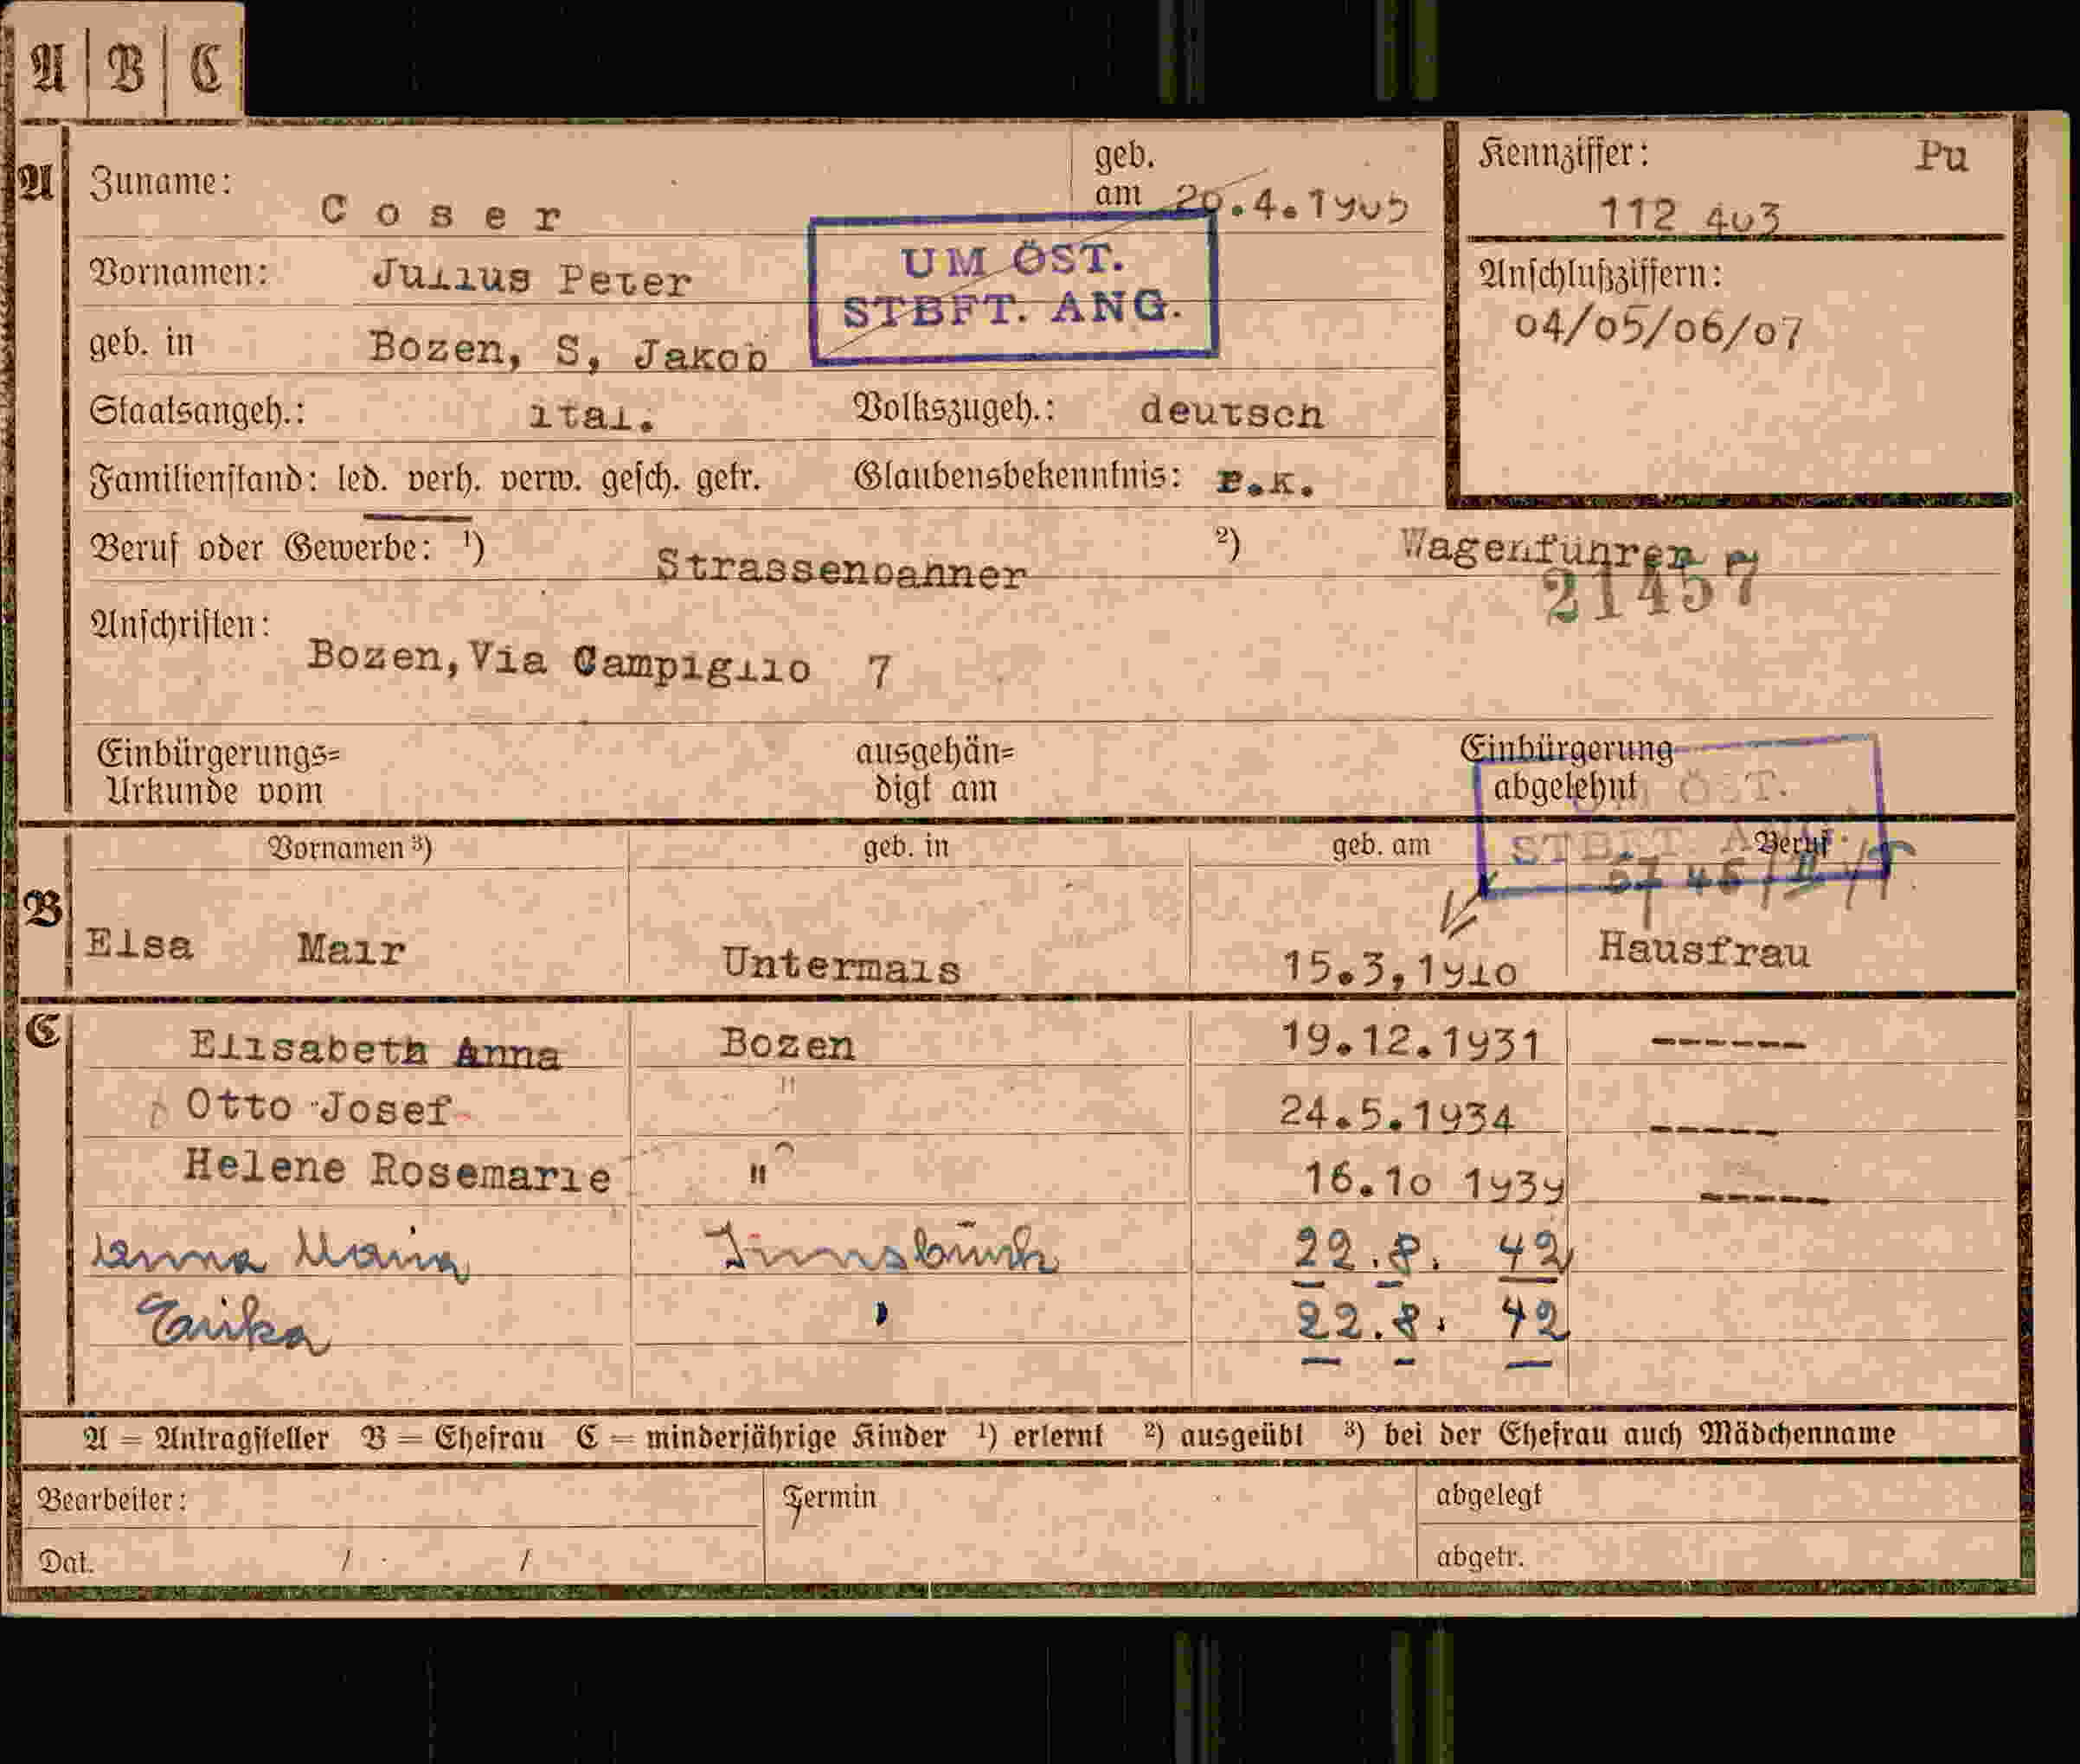 A | B | C
A
Zuname: Coser
geb. am 20.4.1905
Kennziffer: Pu
112 403
Vornamen: Julius Peter
UM ÖST.
STBFT. ANG.
Anschlußziffern:
04/05/06/07
geb. in Bozen, S, Jakob
Staatsangeh.: ital. Volkszugeh.: deutsch
Familienstand: led. verh. verw. gesch. getr. Glaubensbekenntnis: R.K.
Beruf oder Gewerbe: ¹) Strassenbahner ²) Wagenführer
21457
Anschriften: Bozen, Via Campiglio 7
Einbürgerungs=
Urkunde vom
ausgehän=
digt am
Einbürgerung
abgelehnt
UM ÖST.
STBFT. ANG.
B
Vornamen ³) geb. in geb. am Beruf
Elsa Mair Untermais 15.3,1910 Hausfrau
C
Elisabeth Anna Bozen 19.12.1931 ------
Otto Josef " 24.5.1934 -----
Helene Rosemarie " 16.10 1939 -----
Anna Maria Innsbruck 22.8. 42
Erika " 22.8. 42
A = Antragsteller B = Ehefrau C = minderjährige Kinder ¹) erlernt ²) ausgeübt ³) bei der Ehefrau auch Mädchenname
Bearbeiter: Termin abgelegt
Dat. / / abgetr.